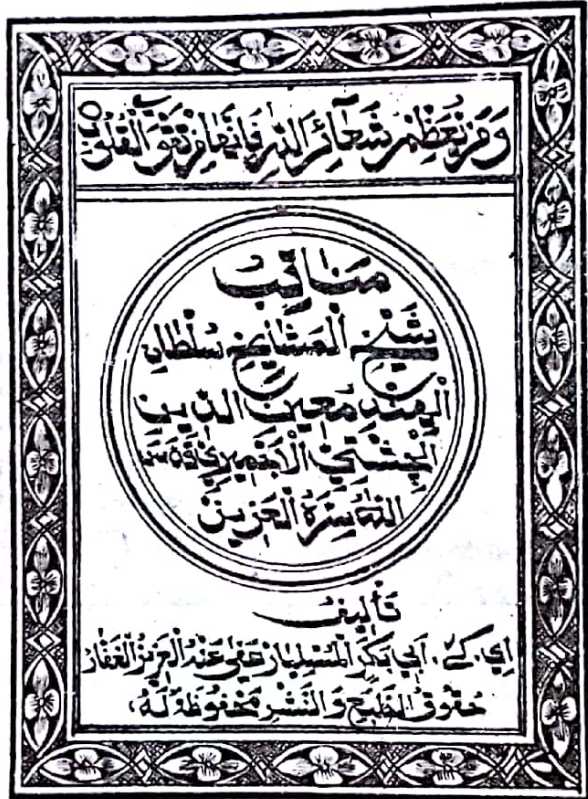 وَمَنْ يُعَظِّمْ شَعَآئِرَ اللهِ فَإِنَّهَا مِنْ تَقْوَى الْقُلُوبِ
مَنَاقِبُ
شَيْخِ الْمَشَايِخِ سُلْطَانِ
الْهِنْدِ مُعِينِ الدِّينِ
الْچِشْتِي الْأَجْمِيرِي قَدَّسَ
اللهُ سِرَّهُ الْعَزِيزَ
تَأْلِيفُ
اي. كے. أَبِي بَكَرِ الْمُسْلِيَارْ عَفَى عَنْهُ الْعَزِيزُ الْغَفَّارُ
حُقُوقُ الطَّبْعِ وَالنَّشْرِ مَحْفُوظَةٌ لَهُ،